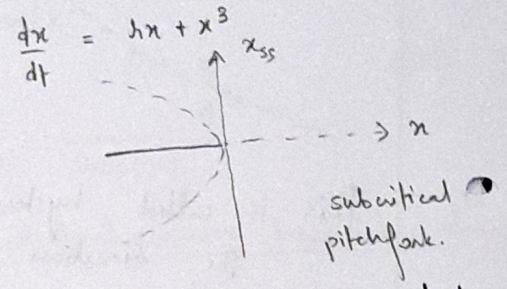 dx/dt = rx + x³
x_ss
x
subcritical
pitchfork.